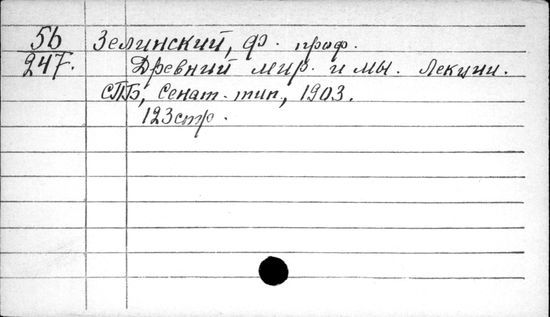 56 Зелинский, Ф. проф.
247. Древний мир и мы. Лекции.
СПБ, Сенат. тип., 1903.
123 стр.